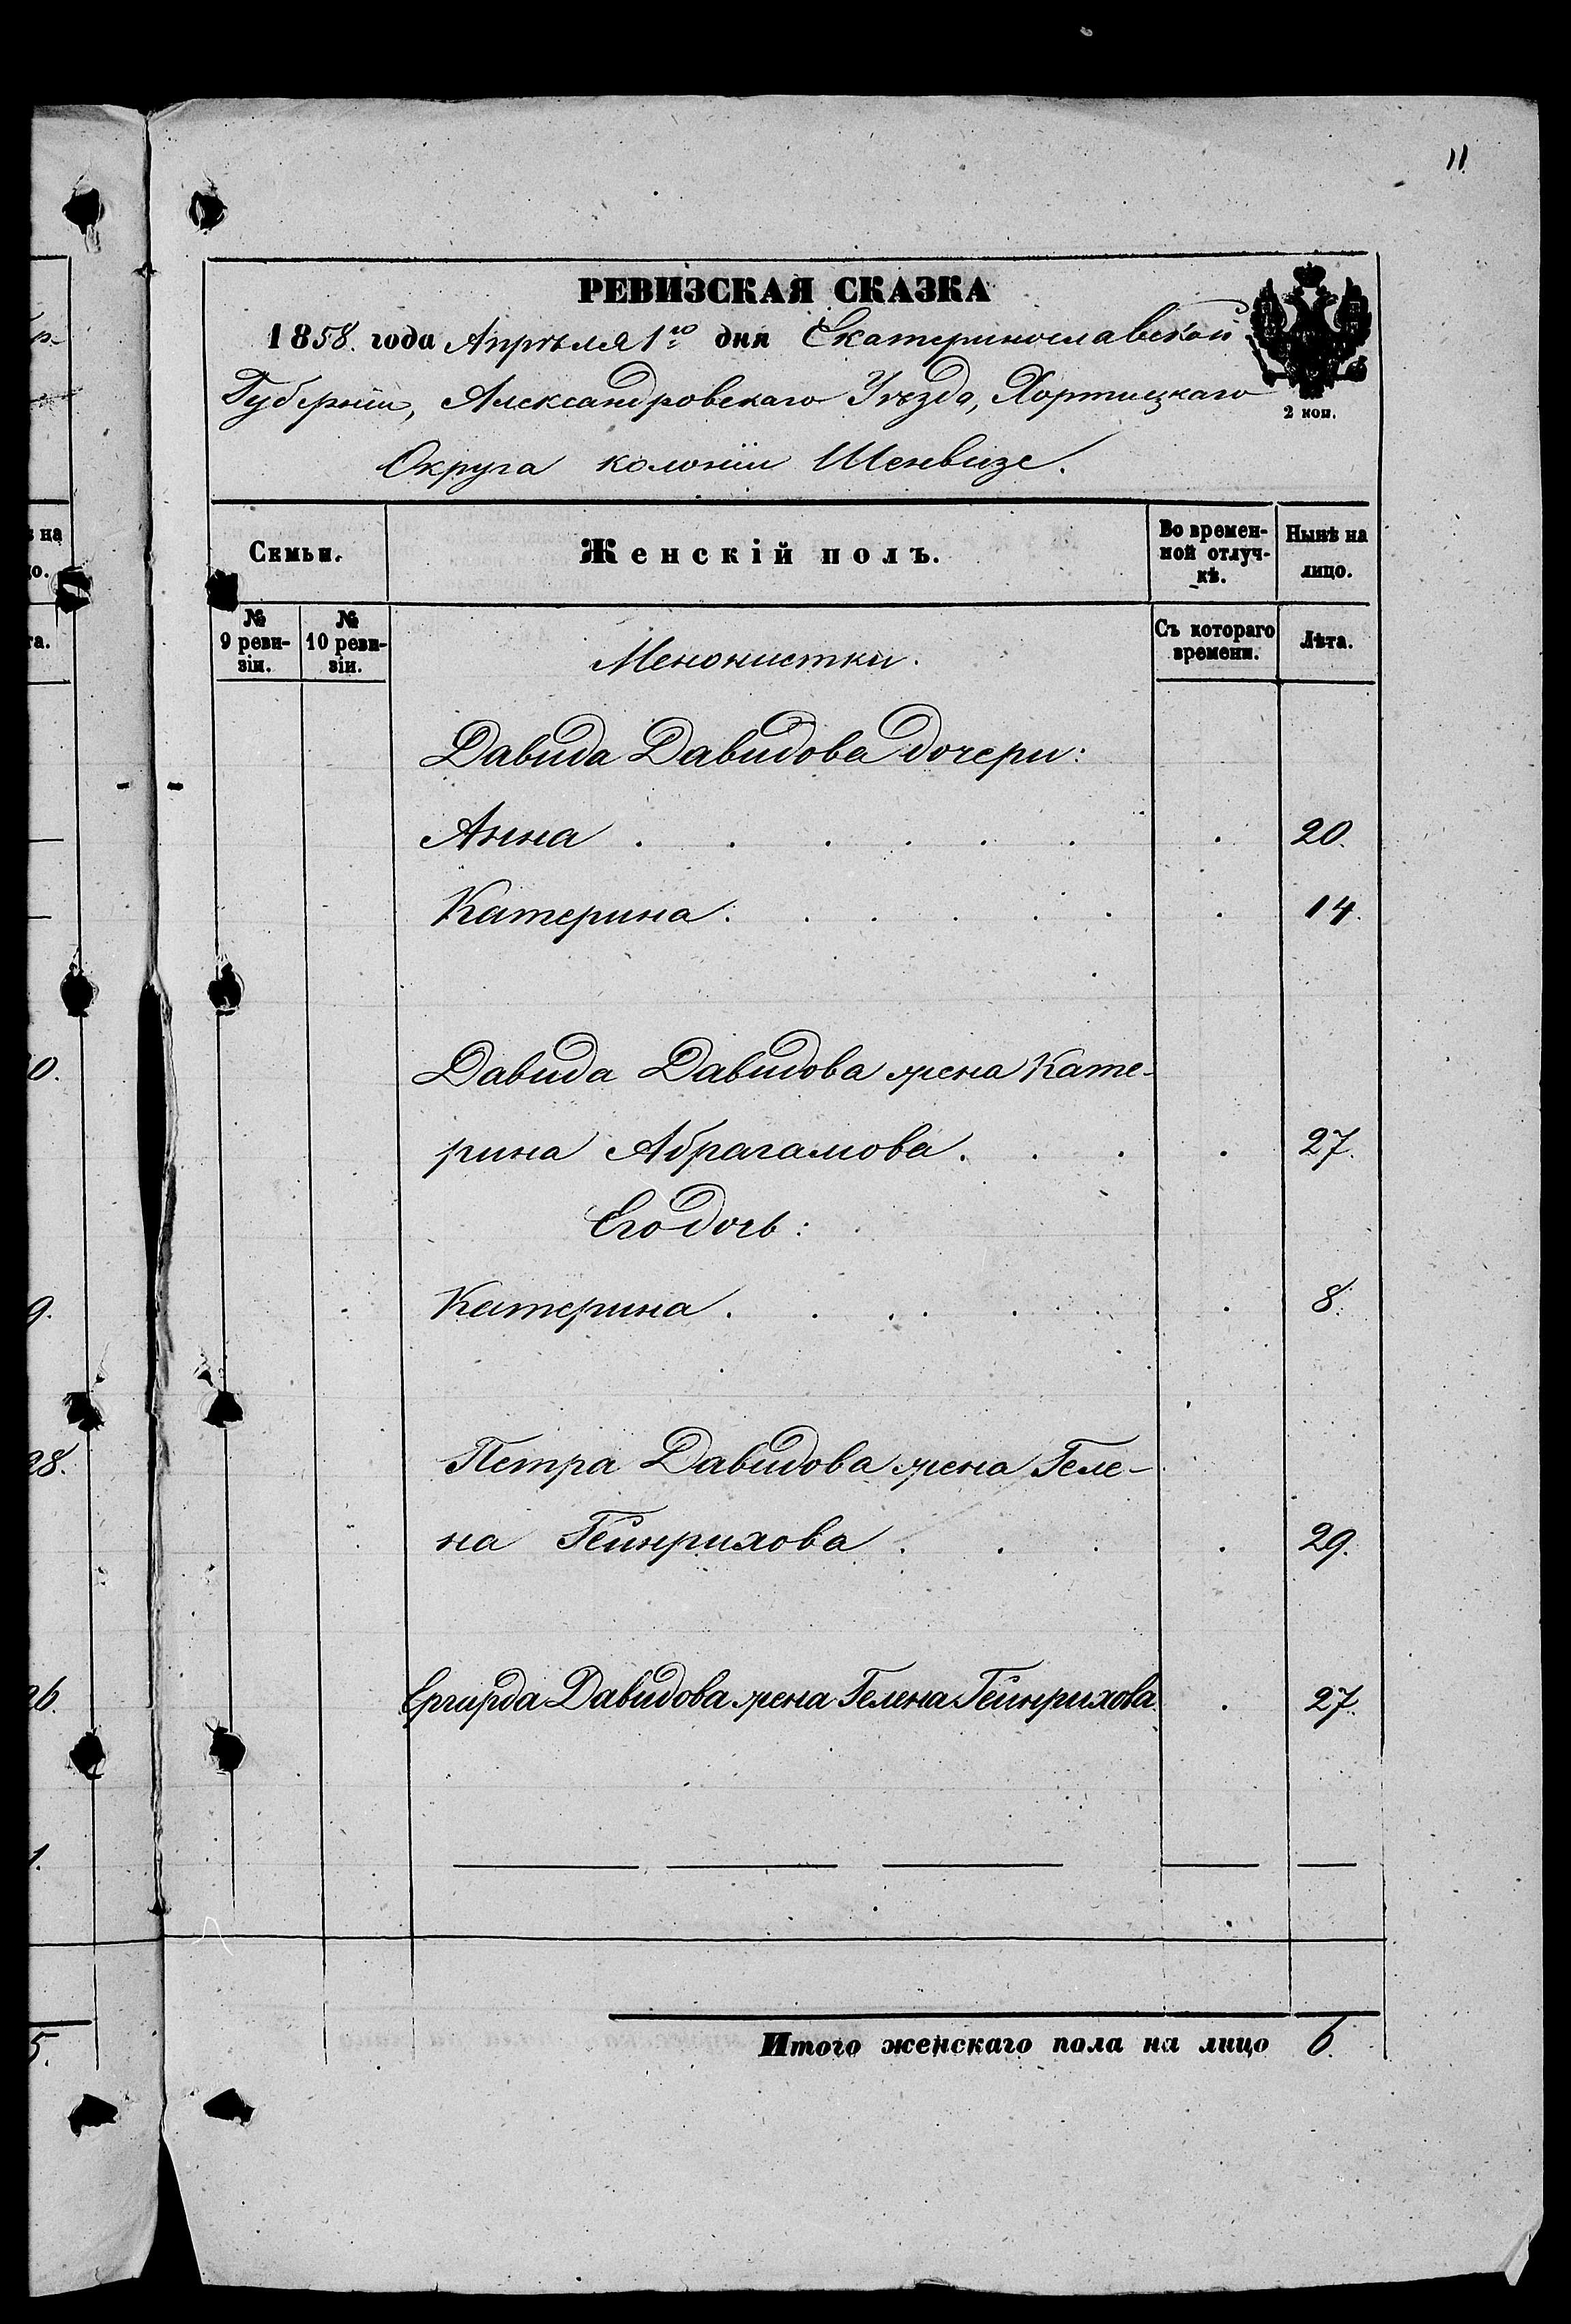 11
РЕВИЗСКАЯ СКАЗКА
1858. года Апрѣля 1го дня Екатеринославской
Губерніи, Александровскаго Уѣзда, Хортицкаго
2 коп.
Округа колоніи Шенвизе.
Семьи.
Женскій полъ.
Во времен-
ной отлуч-
кѣ.
Нынѣ на
лицо.
№
9 реви-
зіи.
№
10 реви-
зіи.
Менонистки.
Съ котораго
времени.
Лѣта.
Давида Давидова дочери:
Анна . . . . . . . 20.
Катерина . . . . . . . 14.
Давида Давидова жена Кате-
рина Абрагамова . . . . 27.
Его дочь:
Катерина . . . . . . . 8.
Петра Давидова жена Геле-
на Гейнрихова . . . . 29.
Ергирда Давидова жена Гелена Гейнрихова . 27.
Итого женскаго пола на лицо 6.